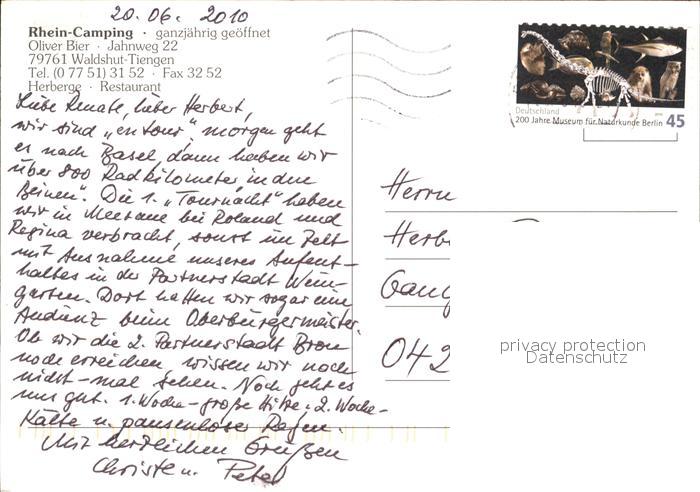 20.06. 2010
Rhein-Camping · ganzjährig geöffnet
Oliver Bier · Jahnweg 22
79761 Waldshut-Tiengen
Tel. (0 77 51) 31 52 · Fax 32 52
Herberge · Restaurant
Liebe Renate, lieber Herbert,
wir sind „en tour", morgen geht
es nach Basel, dann haben wir
über 800 Radkilometer „in den
Beinen". Die 1. „Tournacht" haben
wir in Meerane bei Roland und
Regina verbracht, sonst im Zelt
mit Ausnahme unseres Aufent-
haltes in der Partnerstadt Wein-
garten. Dort hatten wir sogar eine
Audienz beim Oberbürgermeister.
Ob wir die 2. Partnerstadt Bron
noch erreichen wissen wir noch
nicht – mal sehen. Noch geht es
uns gut. 1. Woche – große Hitze, 2. Woche –
Kälte u. pausenloser Regen.
Mit herzlichen Grüßen
Christe u. Peter
Deutschland
200 Jahre Museum für Naturkunde Berlin 45
Herrn
Herb
Gang
042
privacy protection
Datenschutz